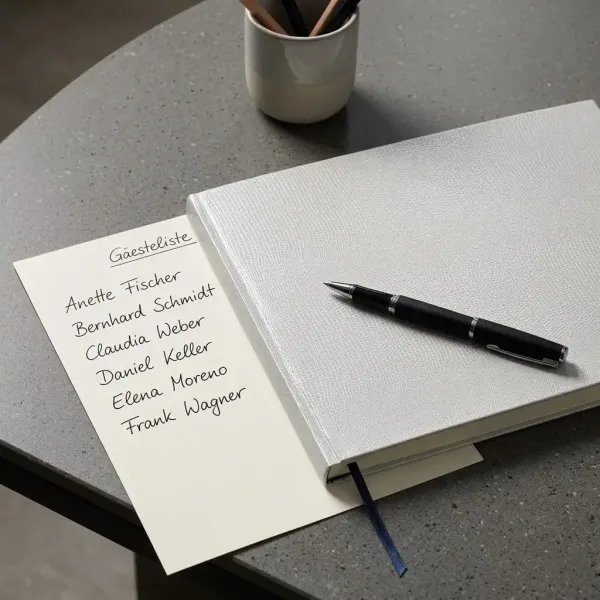 Gäesteliste
Anette Fischer
Bernhard Schmidt
Claudia Weber
Daniel Keller
Elena Moreno
Frank Wagner